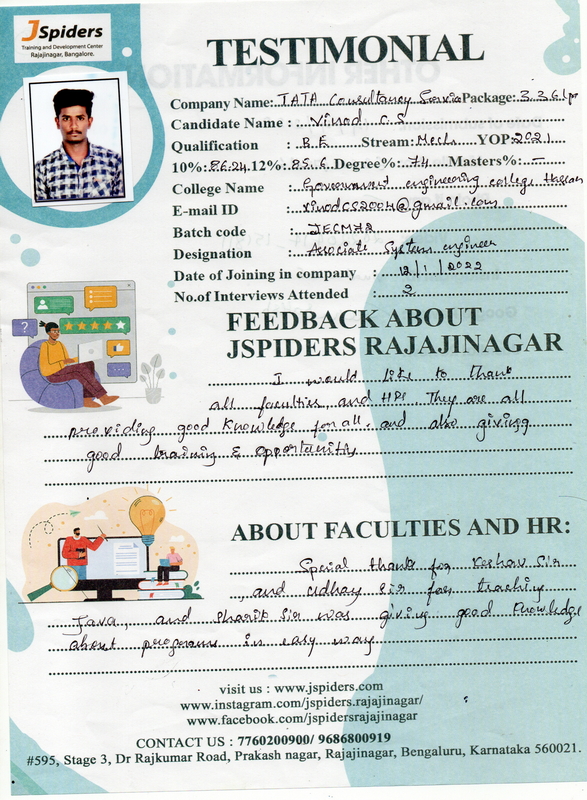 JSpiders
Training and Development Center
Rajajinagar, Bangalore.
TESTIMONIAL
Company Name: TATA Consultancy Service Package: 3.36 lpa
Candidate Name : Vinod C.S
Qualification : B.E Stream: Mech YOP: 2021
10%: 86.24 12%: 85.6 Degree%: 74 Masters%: –
College Name : Government engineering college Hassan
E-mail ID : vinodcs2004@gmail.com
Batch code :
Designation : Associate System engineer
Date of Joining in company : 12/1/2022
No.of Interviews Attended : 2
FEEDBACK ABOUT
JSPIDERS RAJAJINAGAR
I would like to thank
all faculties, and HR. They are all
providing good Knowledge for all, and also giving
good training & opportunity
ABOUT FACULTIES AND HR:
Special thanks for Keshav Sir
, and Udhay Sir for teaching
Java, and Sharib Sir was giving good knowledge
about programs in easy way
visit us : www.jspiders.com
www.instagram.com/jspiders.rajajinagar/
www.facebook.com/jspidersrajajinagar
CONTACT US : 7760200900/ 9686800919
#595, Stage 3, Dr Rajkumar Road, Prakash nagar, Rajajinagar, Bengaluru, Karnataka 560021.